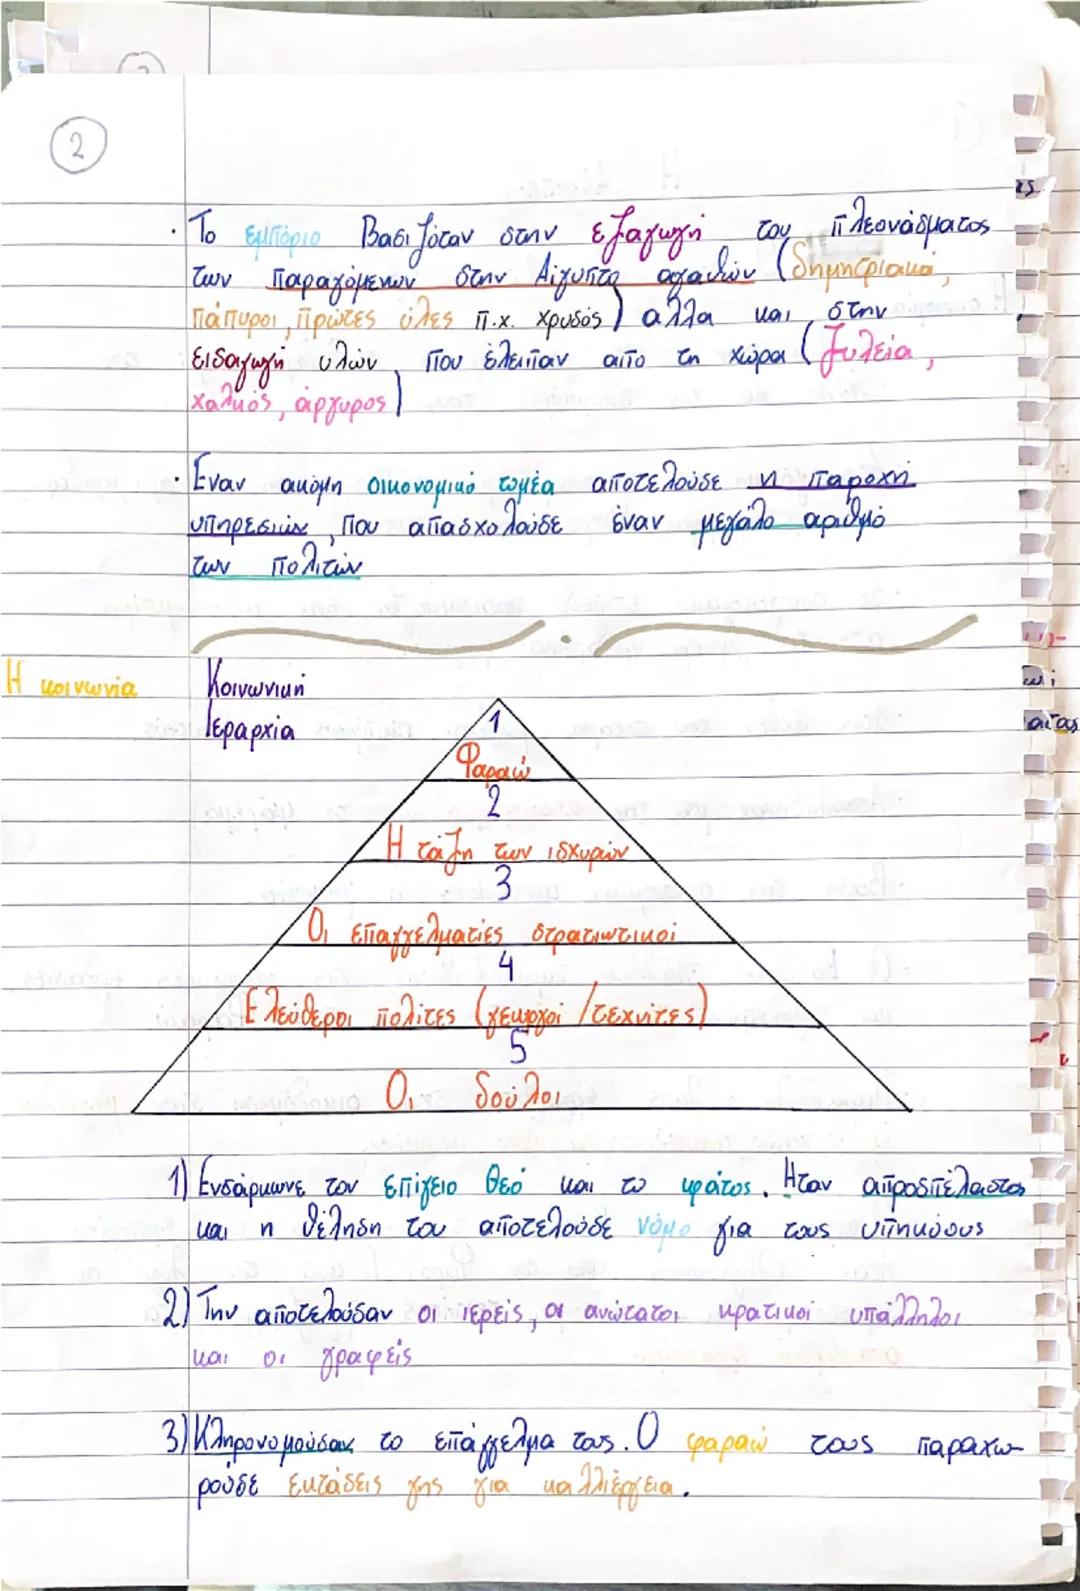 2
· Το εμπόριο βασιζόταν στην εξαγωγή του πλεονάσματος
των παραγόμενων στην Αίγυπτο αγαθών (δημητριακά,
πάπυροι, πρώτες ύλες π.χ. χρυσός) αλλα και στην
εισαγωγή υλών που έλειπαν απο τη χώρα (ξυλεία,
χαλκός, άργυρος)
· Έναν ακόμη οικονομικό τομέα αποτελούσε η παροχή
υπηρεσιών, που απασχολούσε έναν μεγάλο αριθμό
των πολιτών
Η κοινωνία
Κοινωνική
Ιεραρχία
1
Φαραώ
2
Η τάξη των ισχυρών
3
Οι επαγγελματίες στρατιωτικοί
4
Ελεύθεροι πολίτες (γεωργοί/τεχνίτες)
5
Οι δούλοι
1) Ενσάρκωνε τον επίγειο θεό και το κράτος. Ήταν απροσπέλαστος
και η θέληση του αποτελούσε νόμο για τους υπηκόους
2) Την αποτελούσαν οι ιερείς, οι ανώτατοι κρατικοί υπάλληλοι
και οι γραφείς
3) Κληρονομούσαν το επάγγελμα τους. Ο φαραώ τους παραχω-
ρούσε εκτάσεις γης για καλλιέργεια.